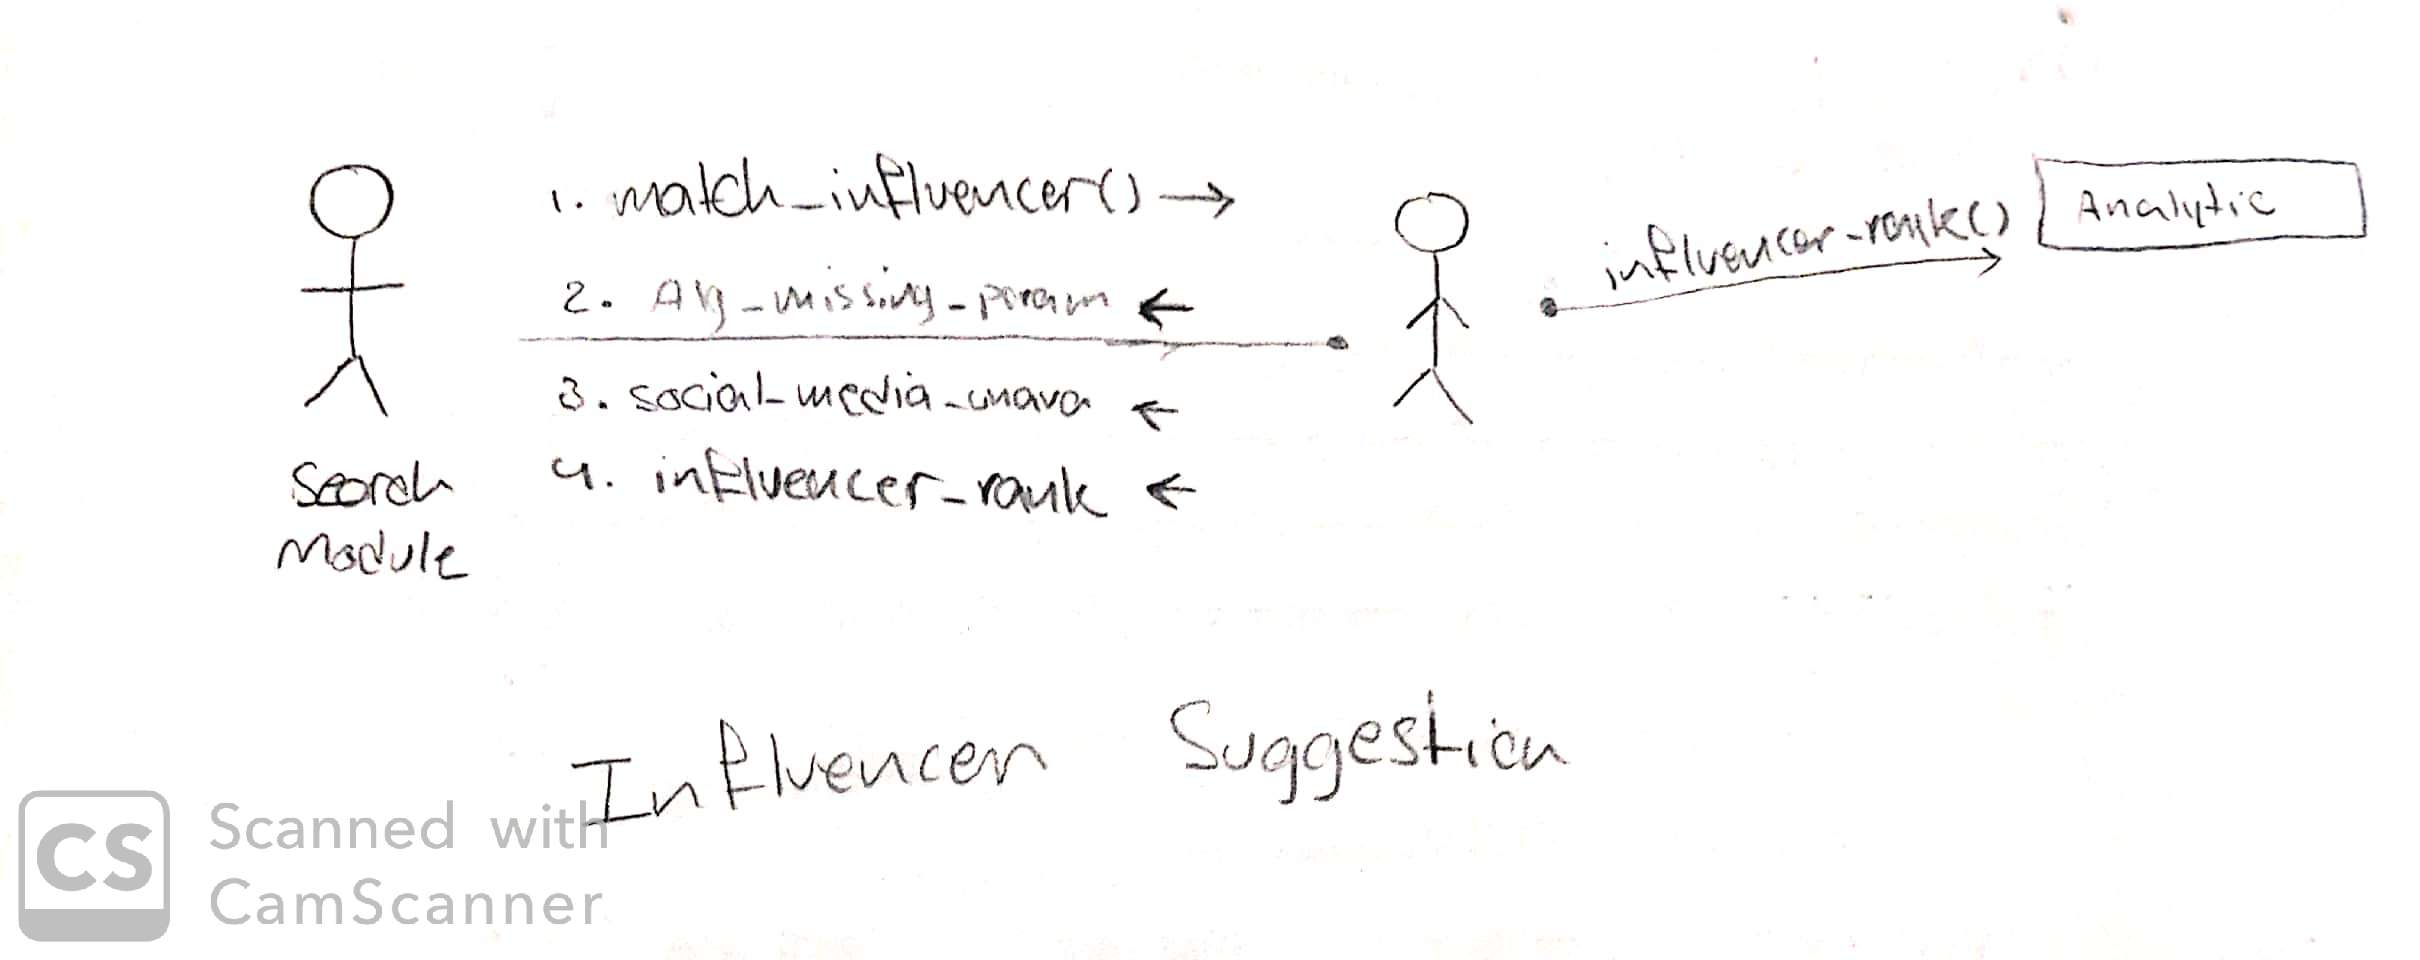 1. match_influencer() →
2. Alg_missing_param ←
3. social_media_unava ←
4. influencer_rank ←
influencer_rank()
Analytic
Search
Module
Influencer Suggestion
CS
Scanned with
CamScanner